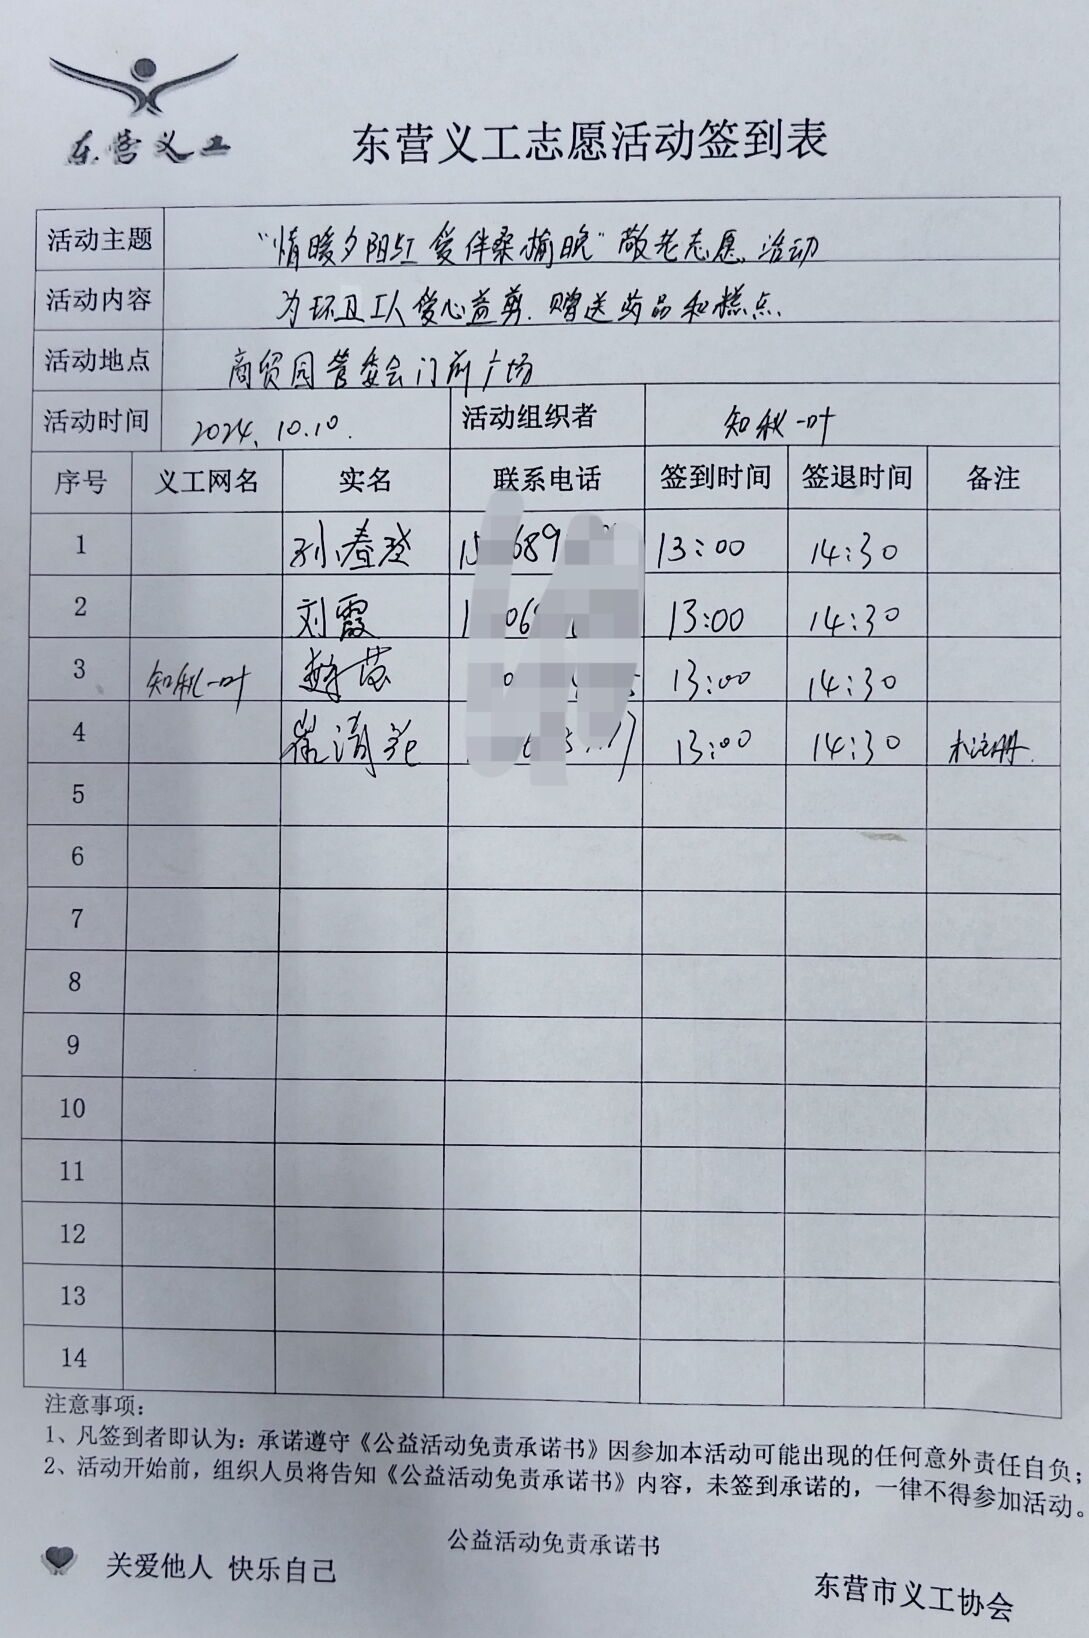 东营义工
东营义工志愿活动签到表
活动主题 "情暖夕阳红 爱伴桑榆晚"敬老志愿活动
活动内容 为环卫工人爱心益剪.赠送药品和糕点.
活动地点 商贸园管委会门前广场
活动时间 2024.10.10. 活动组织者 知秋一叶
序号 义工网名 实名 联系电话 签到时间 签退时间 备注
1 孙春 13:00 14:30
2 刘霞 13:00 14:30
3 知秋一叶 13:00 14:30
4 崔清 13:00 14:30 未注册
5
6
7
8
9
10
11
12
13
14
注意事项：
1、凡签到者即认为：承诺遵守《公益活动免责承诺书》因参加本活动可能出现的任何意外责任自负；
2、活动开始前，组织人员将告知《公益活动免责承诺书》内容，未签到承诺的，一律不得参加活动。
公益活动免责承诺书
关爱他人 快乐自己
东营市义工协会